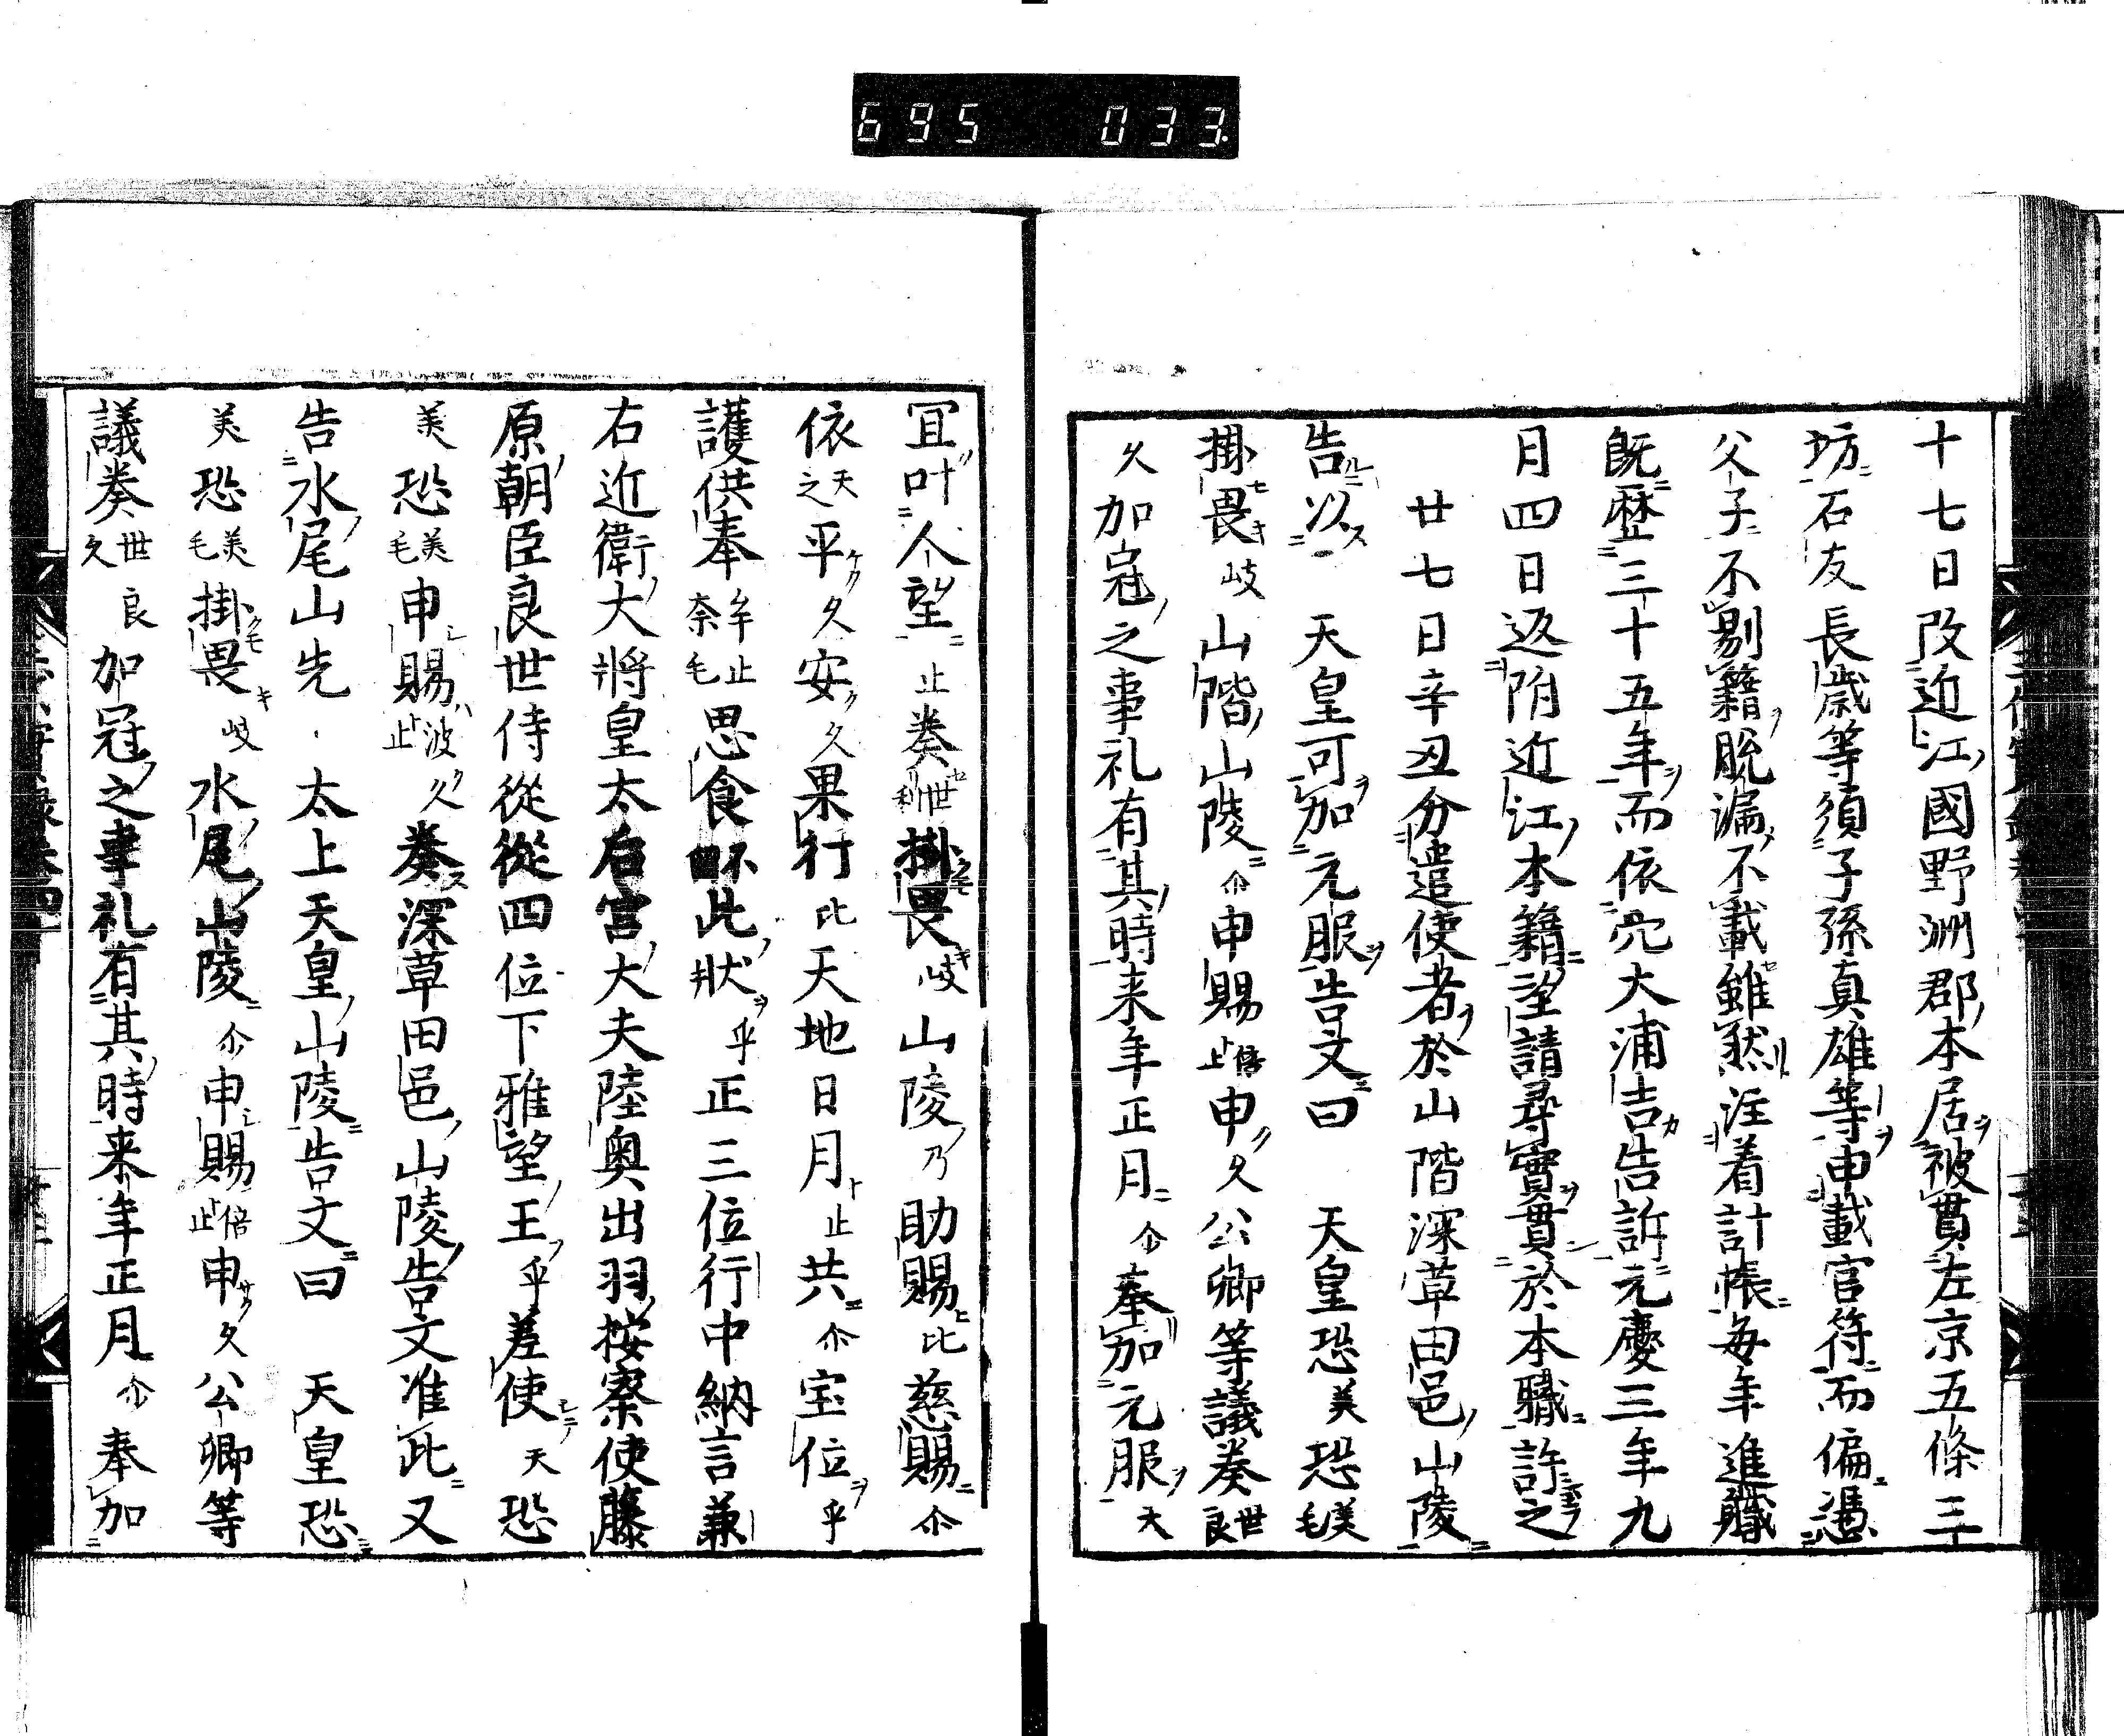 695 033
十七日改近江國野洲郡本居被貫左京五條三
坊石友長歳等須子孫真雄等申載官符而偏憑
父子不剔籍脱漏不載雖然注着計帳毎年進職
既歴三十五年而依宍大浦吉告訴元慶三年九
月四日返附近江本籍望請尋實貫於本職許之
廿七日辛丑分遣使者於山階深草田邑山陵
告以天皇可加元服告文曰天皇恐美恐美毛
掛畏岐山階山陵尒申賜倍止申久公卿等議奏世良
久加冠之事礼有其時来年正月尒奉加元服天
冝叶人望止奏世利掛畏岐山陵乃助賜比慈賜尒
依天之平久安久果行比天地日月止共尒宝位乎
護供奉牟止奈毛思食此状乎正三位行中納言兼
右近衛大將皇太后宮大夫陸奥出羽按察使藤
原朝臣良世侍從從四位下雅望王乎差使天恐
美恐美毛申賜波止久奏深草田邑山陵告文准此又
告水尾山先太上天皇山陵告文曰天皇恐
美恐美毛掛畏岐水尾山陵尒申賜倍止申久公卿等
議奏世良久加冠之事礼有其時来年正月尒奉加